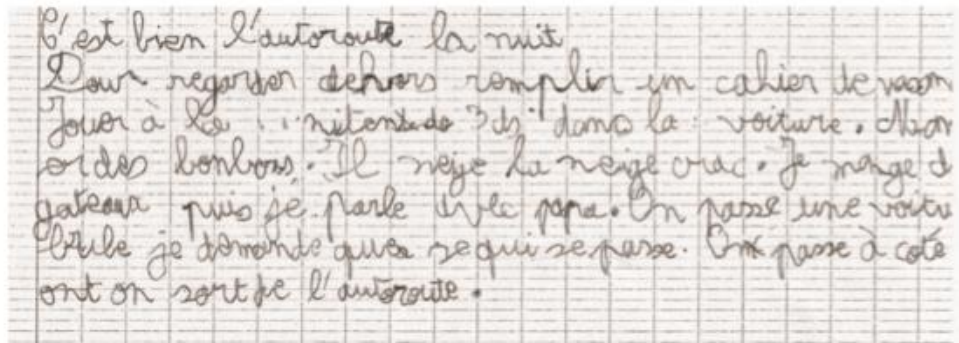 C'est bien l'autoroute la nuit
Pour regarder dehors remplir un cahier de vacan
Jouer à la nitendo 3ds dans la voiture. Man
or des bonbons. Il neije la neige crac. Je mange d
gateaux puis je parle avec papa. On passe une voitu
brule je demande ques se qui se passe. On passe à coté
ont on sort de l'autoroute.